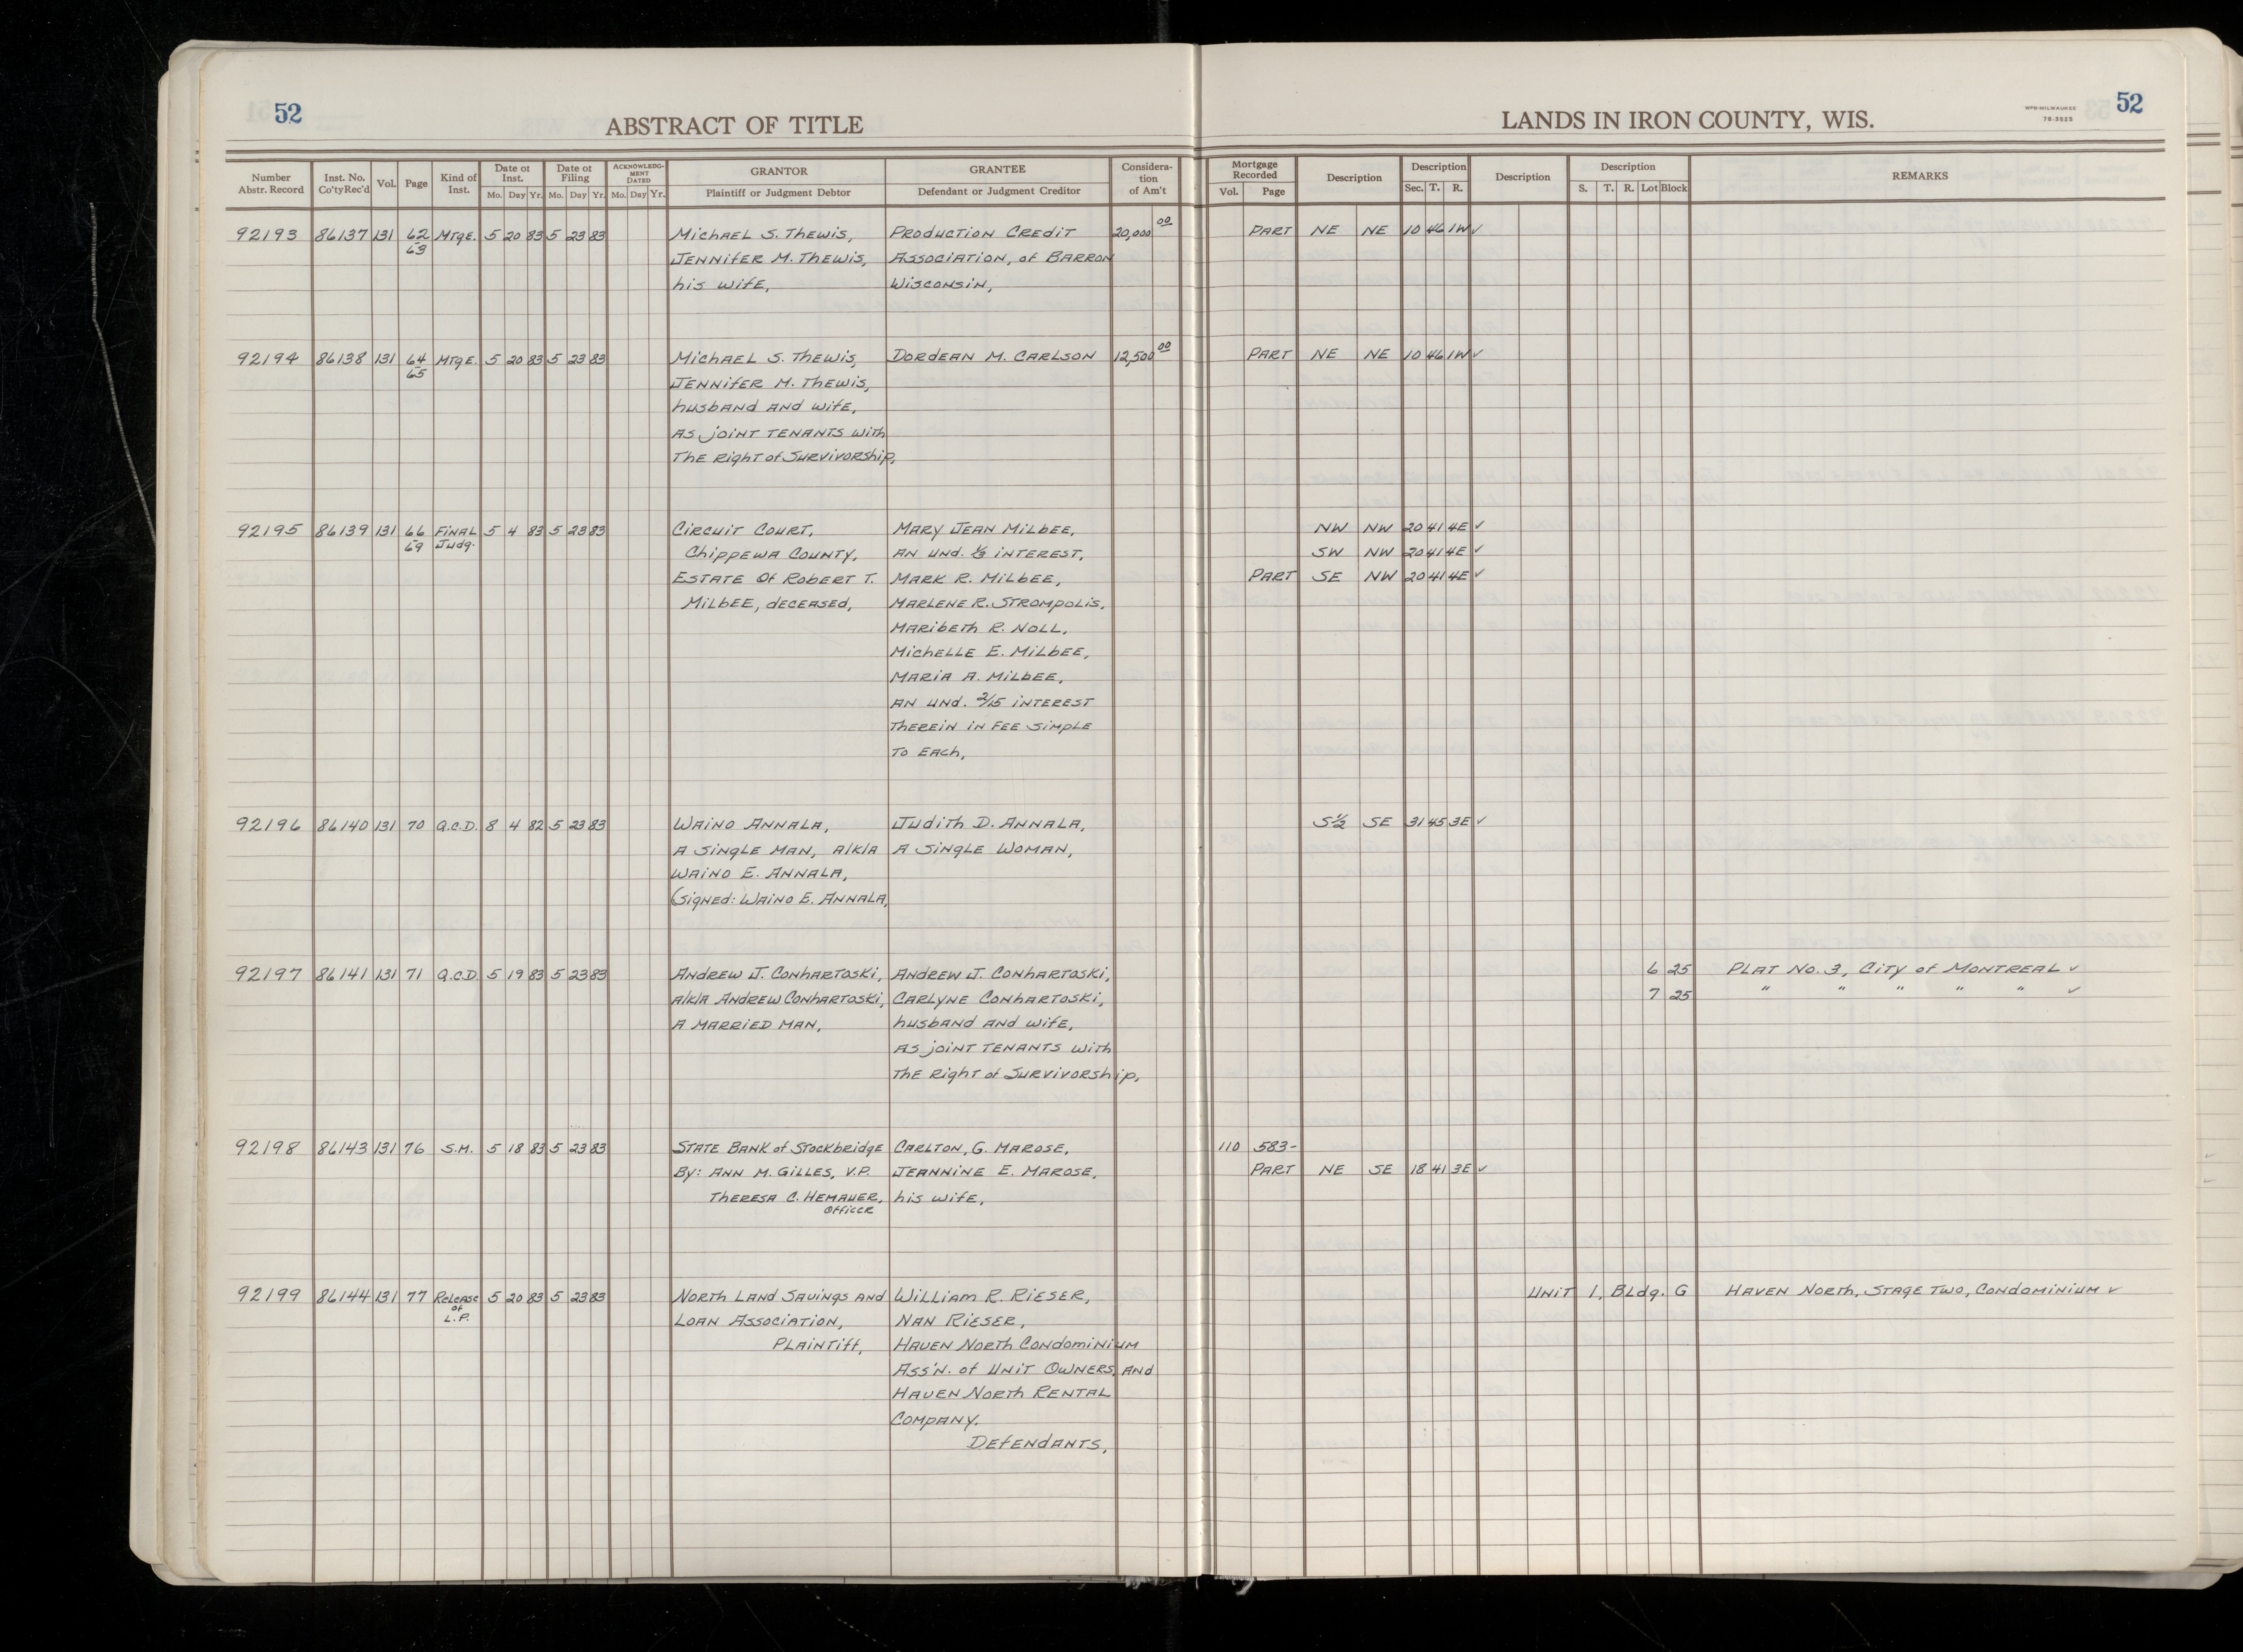 52
ABSTRACT OF TITLE
LANDS IN IRON COUNTY, WIS.
WPB-MILWAUKEE
78-3525
52
Number Abstr. Record
Inst. No. Co'tyRec'd
Vol.
Page
Kind of Inst.
Date of Inst.
Mo. Day Yr.
Date of Filing
Mo. Day Yr.
ACKNOWLEDG-MENT DATED
Mo. Day Yr.
GRANTOR
Plaintiff or Judgment Debtor
GRANTEE
Defendant or Judgment Creditor
Considera-tion of Am't
Mortgage Recorded
Vol. Page
Description
Description
Sec. T. R.
Description
Description
S. T. R. Lot Block
REMARKS
92193 86137 131 62 MTgE. 5 20 83 5 23 83 Michael S. Thewis, Production Credit 20,000 00 PART NE NE 10 46 1W ✓
63 Jennifer M. Thewis, Association, of Barron
his wife, Wisconsin,
92194 86138 131 64 MTgE. 5 20 83 5 23 83 Michael S. Thewis, Dordean M. Carlson 12,500 00 PART NE NE 10 46 1W ✓
65 Jennifer M. Thewis,
husband and wife,
as joint tenants with
the Right of Survivorship,
92195 86139 131 66 Final 5 4 83 5 23 83 Circuit Court, Mary Jean Milbee, NW NW 20 41 4E ✓
69 Judg. Chippewa County, an und. 1/3 interest, SW NW 20 41 4E ✓
Estate of Robert T. Mark R. Milbee, PART SE NW 20 41 4E ✓
Milbee, deceased, Marlene R. Strompolis,
Maribeth R. Noll,
Michelle E. Milbee,
Maria A. Milbee,
an und. 2/15 interest
therein in fee simple
to each,
92196 86140 131 70 Q.C.D. 8 4 82 5 23 83 Waino Annala, Judith D. Annala, S½ SE 31 45 3E ✓
a single man, a/k/a a single woman,
Waino E. Annala,
(Signed: Waino E. Annala,
92197 86141 131 71 Q.C.D. 5 19 83 5 23 83 Andrew J. Conhartoski, Andrew J. Conhartoski, 6 25 Plat No. 3, City of Montreal ✓
a/k/a Andrew Conhartoski, Carlyne Conhartoski, 7 25 " " " " " ✓
a married man, husband and wife,
as joint tenants with
the Right of Survivorship,
92198 86143 131 76 S.M. 5 18 83 5 23 83 State Bank of Stockbridge Carlton, G. Marose, 110 583-
By: Ann M. Gilles, V.P. Jeannine E. Marose, PART NE SE 18 41 3E ✓
Theresa C. Hemauer, his wife,
Officer
92199 86144 131 77 Release 5 20 83 5 23 83 North Land Savings and William R. Rieser, Unit 1, Bldg. G Haven North, Stage Two, Condominium ✓
of Loan Association, Nan Rieser,
L.P. Plaintiff, Haven North Condominium
Ass'n. of Unit Owners, and
Haven North Rental
Company.
Defendants,